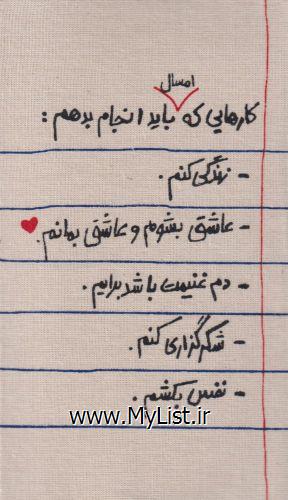 امسال
کارهایی که باید انجام بدهم :
- زندگی کنم .
- عاشق بشوم و عاشق بمانم .
- دم غنیمت باشد برایم .
- شکرگزاری کنم .
- نفس بکشم .
www.MyList.ir